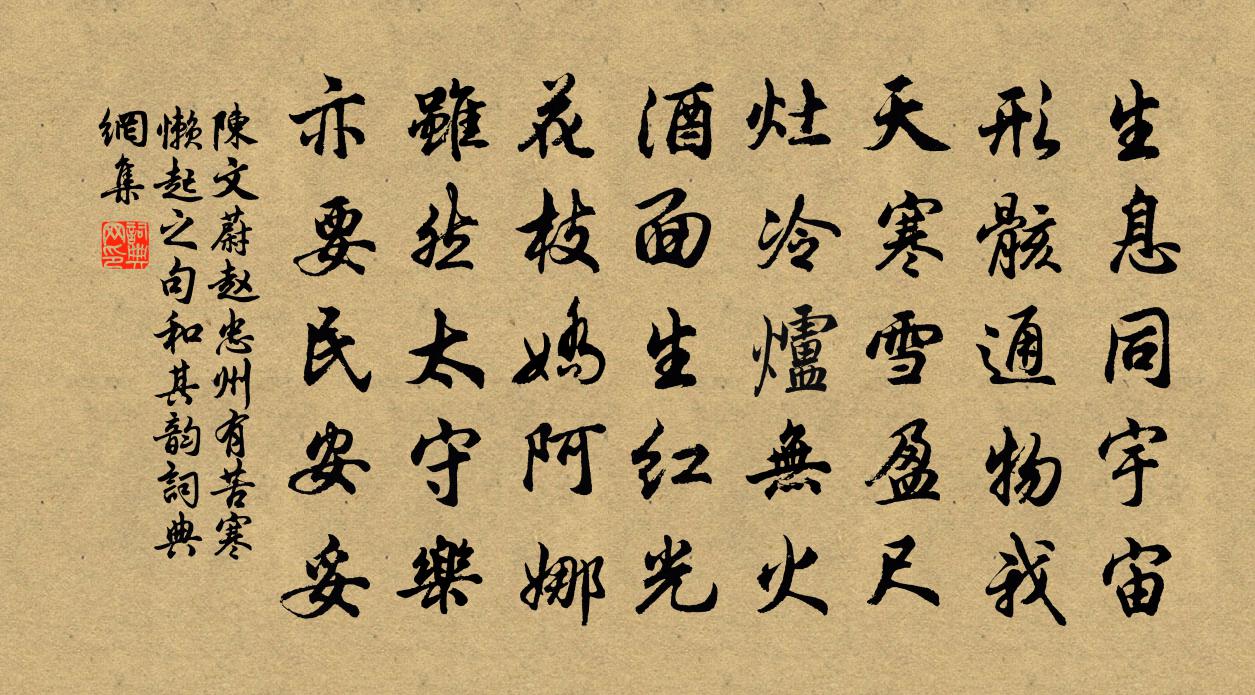 生息同宇宙
形骸通物我
天寒雪盈尺
灶冷爐無火
酒面生红光
花枝嬌阿娜
雖然太守樂
亦要民安妥
陳文蔚赵忠州有苦寒
懒起之句和其韵詞典
網集
詞典
网印